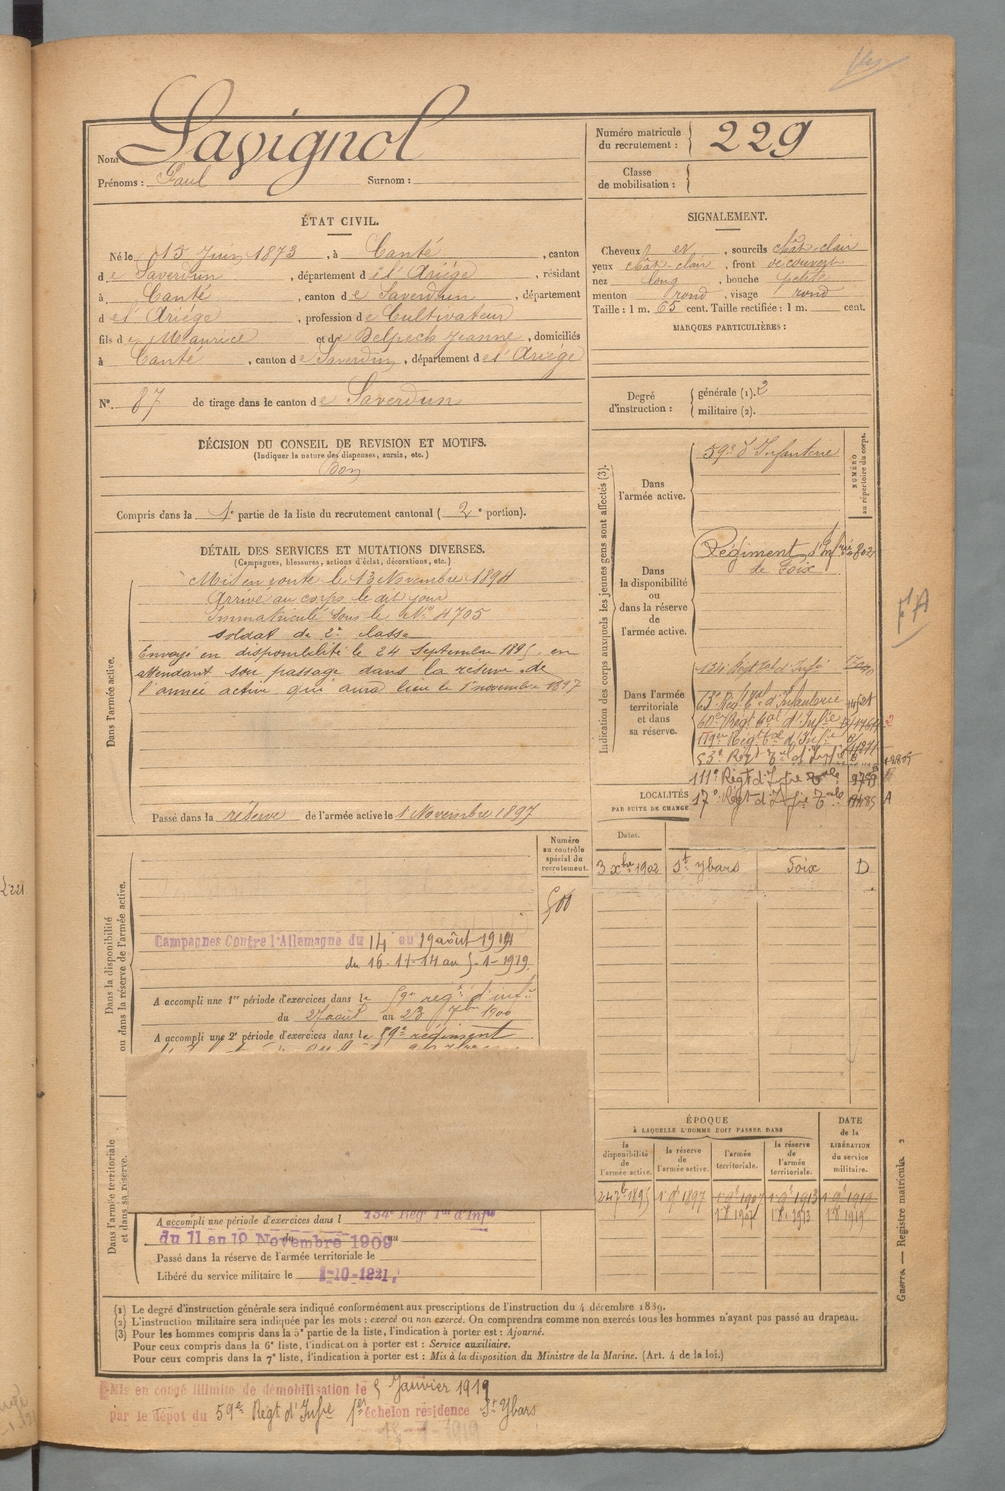 Nom Lavignol
Prénoms : Paul Surnom :
Numéro matricule du recrutement : 229
Classe de mobilisation :
ÉTAT CIVIL.
Né le 15 Juin 1873, à Canté, canton
de Saverdun, département de l'Ariége, résidant
à Canté, canton de Saverdun, département
de l'Ariége, profession de Cultivateur
fils de Maurice et de Delpech Jeanne, domiciliés
à Canté, canton de Saverdun, département de l'Ariége
N°. 87 de tirage dans le canton de Saverdun
SIGNALEMENT.
Cheveux et, sourcils chât-clair
yeux chât-clair, front découvert
nez long, bouche petite
menton rond, visage rond
Taille : 1 m. 65 cent. Taille rectifiée : 1 m. cent.
MARQUES PARTICULIÈRES :
Degré d'instruction : générale (1). 2
militaire (2).
DÉCISION DU CONSEIL DE REVISION ET MOTIFS.
(Indiquer la nature des dispenses, sursis, etc.)
Bon
Compris dans la 1e partie de la liste du recrutement cantonal (2e portion).
DÉTAIL DES SERVICES ET MUTATIONS DIVERSES.
(Campagnes, blessures, actions d'éclat, décorations, etc.)
Dans l'armée active.
Mis en route le 13 Novembre 1894
Arrivé au corps le dit jour
Immatriculé sous le N° 4705
soldat de 2e classe
Envoyé en disponibilité le 24 Septembre 1895 en
attendant son passage dans la réserve de
l'armée active qui aura lieu le 1 novembre 1897
Passé dans la réserve de l'armée active le 1 Novembre 1897
Indication des corps auxquels les jeunes gens sont affectés (3).
NUMÉRO au répertoire du corps.
Dans l'armée active.
59e d'Infanterie
Dans la disponibilité ou dans la réserve de l'armée active.
Régiment d'Infrie
de Foix
Dans l'armée territoriale et dans sa réserve.
134e Regt tal d'Infie
119e Regt tal d'Infie
53e Regt tal d'Infie
111e Régt d'Infre Tale
17e Régt d'Infre Tale
LOCALITÉS
PAR SUITE DE CHANGE
Dates.
3 xbre 1902 St Ybars Foix D
Dans la disponibilité ou dans la réserve de l'armée active.
Numéro au contrôle spécial du recrutement.
500
Campagnes Contre l'Allemagne du 14 au 19 août 1914
du 16-11-14 au 5-1-1919
A accompli une 1re période d'exercices dans le 59e regt d'infie
du 27 août au 23 7bre 1900
A accompli une 2e période d'exercices dans le 59e régiment
Dans l'armée territoriale et dans sa réserve.
A accompli une période d'exercices dans l 134e Rég Tal d'Infie
du 11 au 19 Novembre 1909
Passé dans la réserve de l'armée territoriale le
Libéré du service militaire le
ÉPOQUE
À LAQUELLE L'HOMME DOIT PASSER DANS
la disponibilité de l'armée active.
la réserve de l'armée active.
l'armée territoriale.
la réserve de l'armée territoriale.
DATE de la LIBÉRATION du service militaire.
24 7b 1895 1 9b 1897 1 9b 1907 1 9b 1913 1 9b 1919
1 8b 1907 1 8b 1913 1 8b 1919
(1) Le degré d'instruction générale sera indiqué conformément aux prescriptions de l'instruction du 4 décembre 1889.
(2) L'instruction militaire sera indiquée par les mots : exercé ou non exercé. On comprendra comme non exercés tous les hommes n'ayant pas passé au drapeau.
(3) Pour les hommes compris dans la 5e partie de la liste, l'indication à porter est : Ajourné.
Pour ceux compris dans la 6e liste, l'indication à porter est : Service auxiliaire.
Pour ceux compris dans la 7e liste, l'indication à porter est : Mis à la disposition du Ministre de la Marine. (Art. 4 de la loi.)
Guerre. — Registre matricule.
Mis en congé illimité de démobilisation le 5 Janvier 1919
par le dépot du 59e Régt d'Infre 1er échelon résidence St Ybars